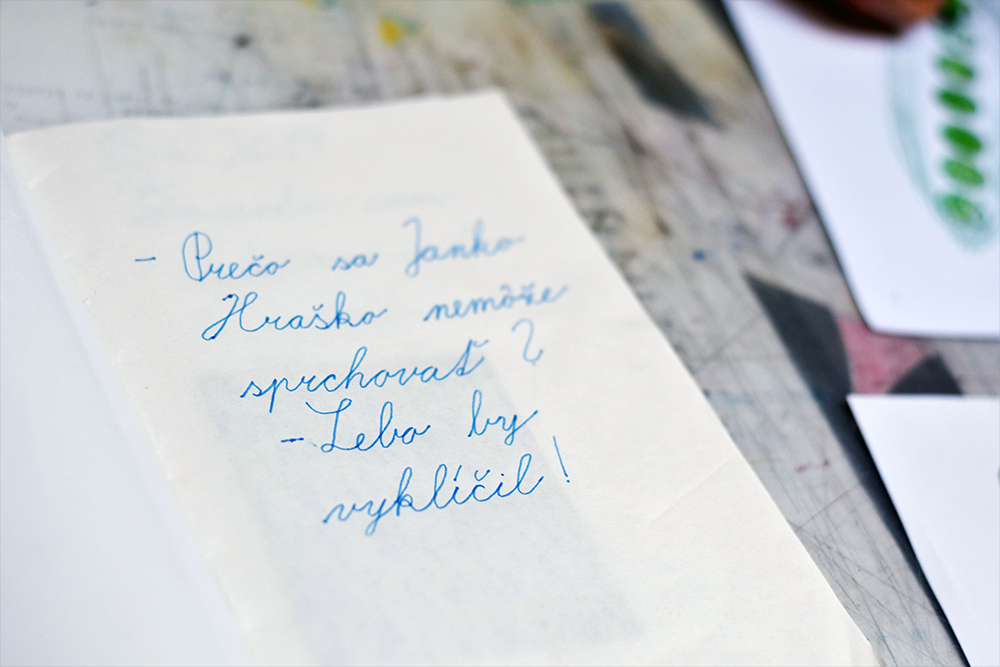 - Prečo sa Janko
Hraško nemôže
sprchovať?
- Lebo by
vyklíčil!